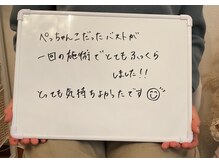 ぺっちゃんこだったバストが
一回の施術でとてもふっくら
しました!!
とっても気持ちよかったです